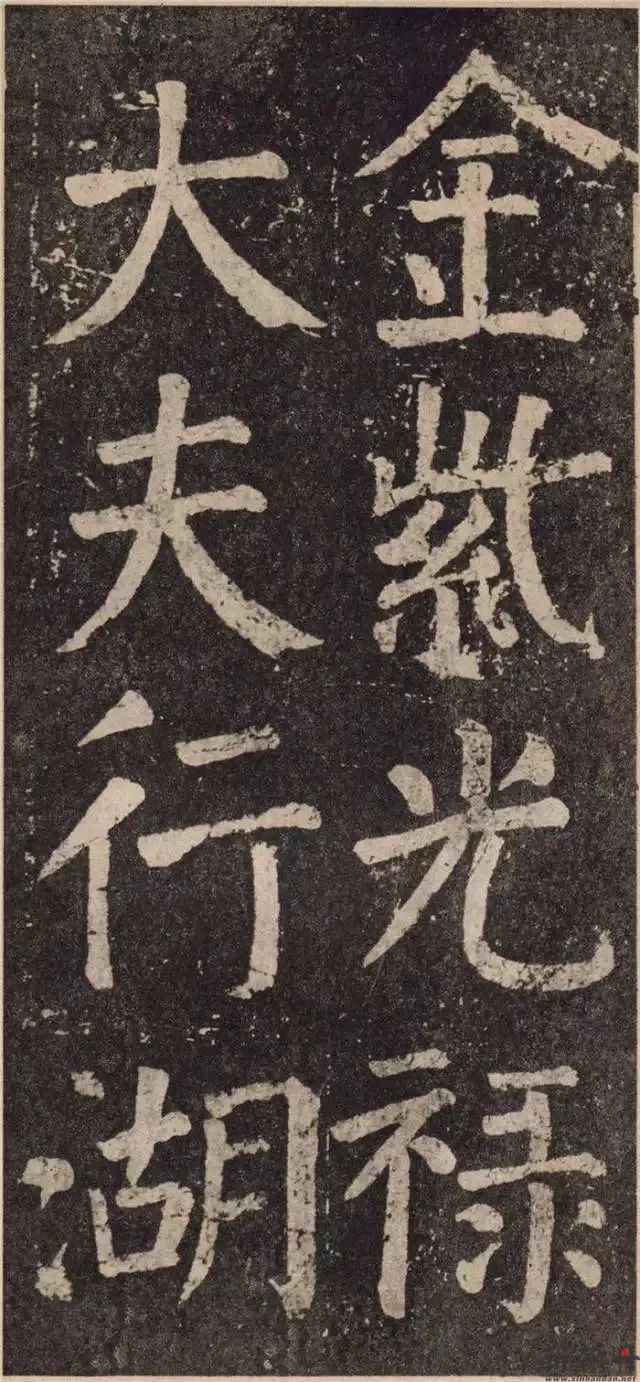 金紫光禄
大夫行湖
www.xinhandan.net